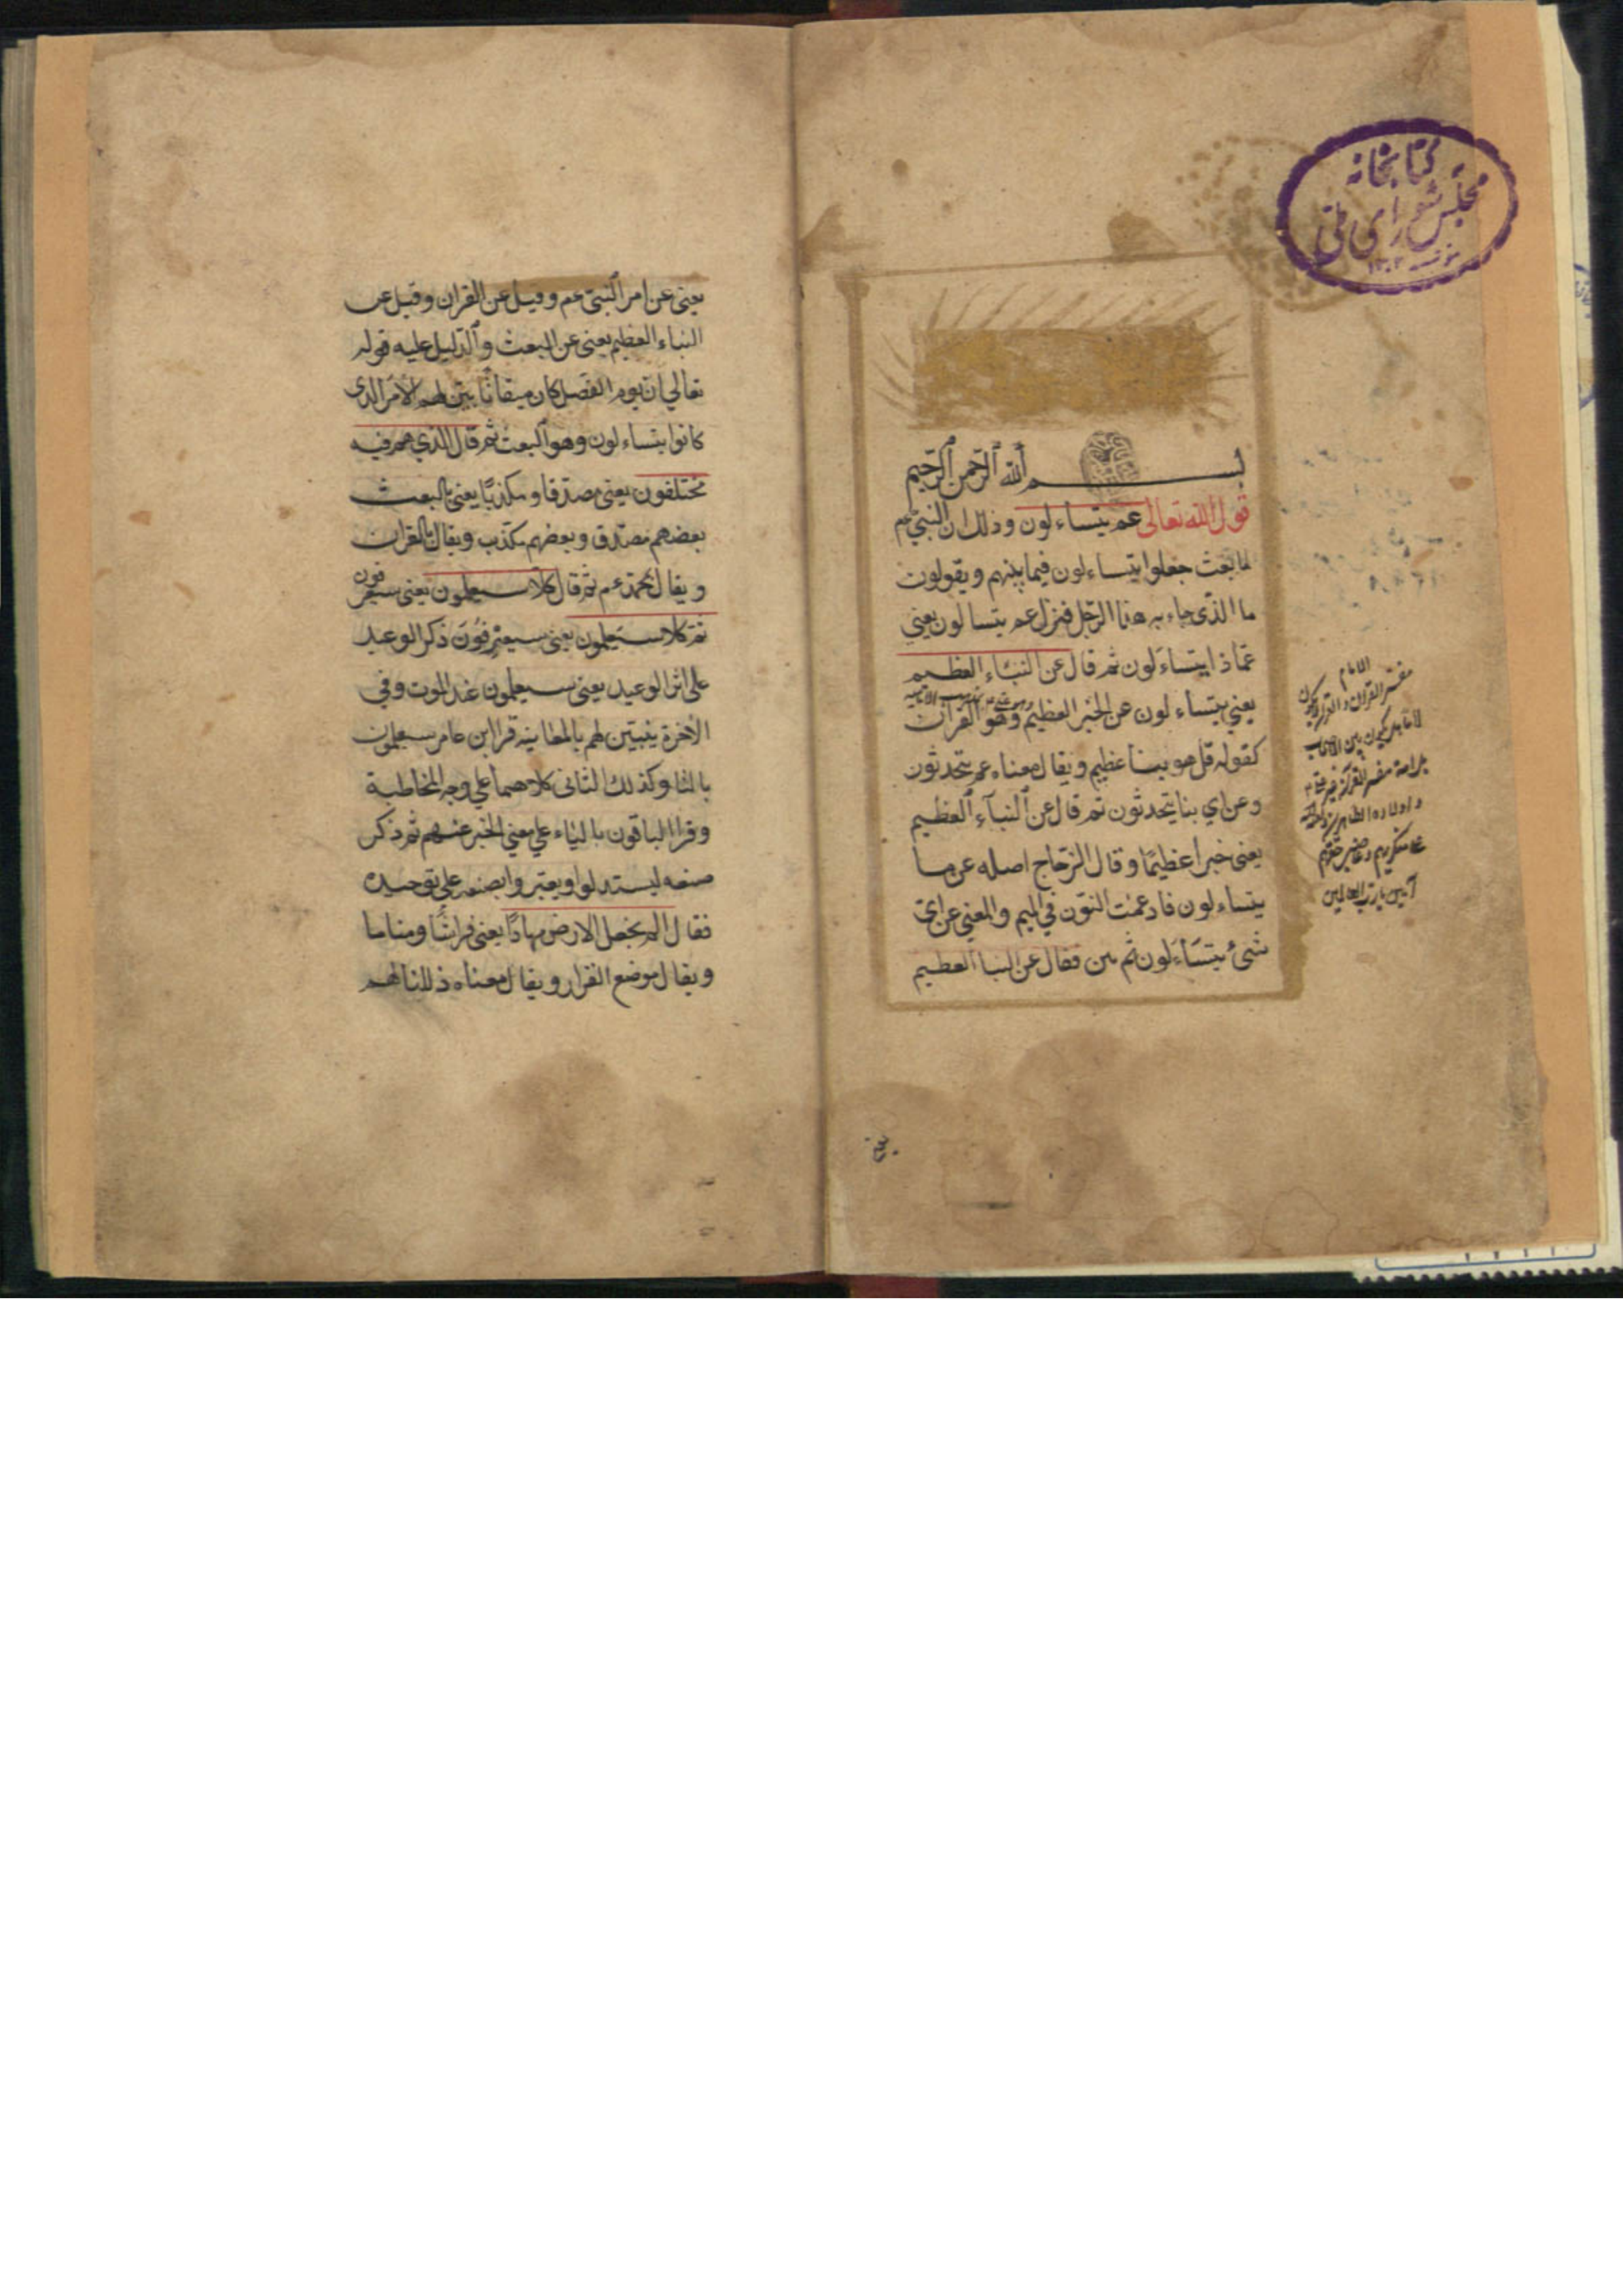 كتابخانه
مجلس شورای ملی
بسم الله الرحمن الرحيم
قول الله تعالى عم يتساءلون وذلك ان النبي عم
لما بعث جعلوا يتساءلون فيما بينهم ويقولون
ما الذي جاء به هذا الرجل فنزل عم يتسالون يعني
عماذا يتساءلون ثم قال عن النباء العظيم
يعني يتساءلون عن الخبر العظيم وهو القران
كقوله قل هو نبا عظيم ويقال معناه عم يتحدثون
وعن اي بنا يتحدثون ثم قال عن النبآء العظيم
يعني خبرا عظيمًا وقال الزجاج اصله عن ما
يتساءلون فادغمت النون في الميم والمعني عن اي
شئ يتساءلون ثم بين فقال عن النبا العظيم
مفسر القران
آمين يا رب العالمين
يعني عن امر النبي عم وقيل عن القران وقيل عن
النباء العظيم يعني عن البعث والدليل عليه قوله
تعالي ان يوم الفصل كان ميقاتًا بين لهم الامر الذي
كانوا يتساءلون وهو البعث ثم قال الذي هم فيه
مختلفون يعني مصدقا ومكذبًا يعني بالبعث
بعضهم مصدق وبعضهم مكذب ويقال بالقران
ويقال بمحمد عم ثم قال كلا سيعلمون يعني سيعرفون
ثم كلا سيعلمون يعني سيعرفون ذكر الوعيد
على اثر الوعيد يعني سيعلمون عند الموت وفي
الاخرة يتبين لهم بالمعاينه قرا ابن عامر ستعلمون
بالتا وكذلك الثاني كلاهما علي وجه المخاطبة
وقرا الباقون بالياء علي معني الخبر عنهم ثم ذكر
صنعه ليستدلوا ويعتبروا بصنعه على توحيده
فقال الم نجعل الارض مهادًا يعني فراشًا ومناما
ويقال موضع القرار ويقال معناه ذللنا لهم